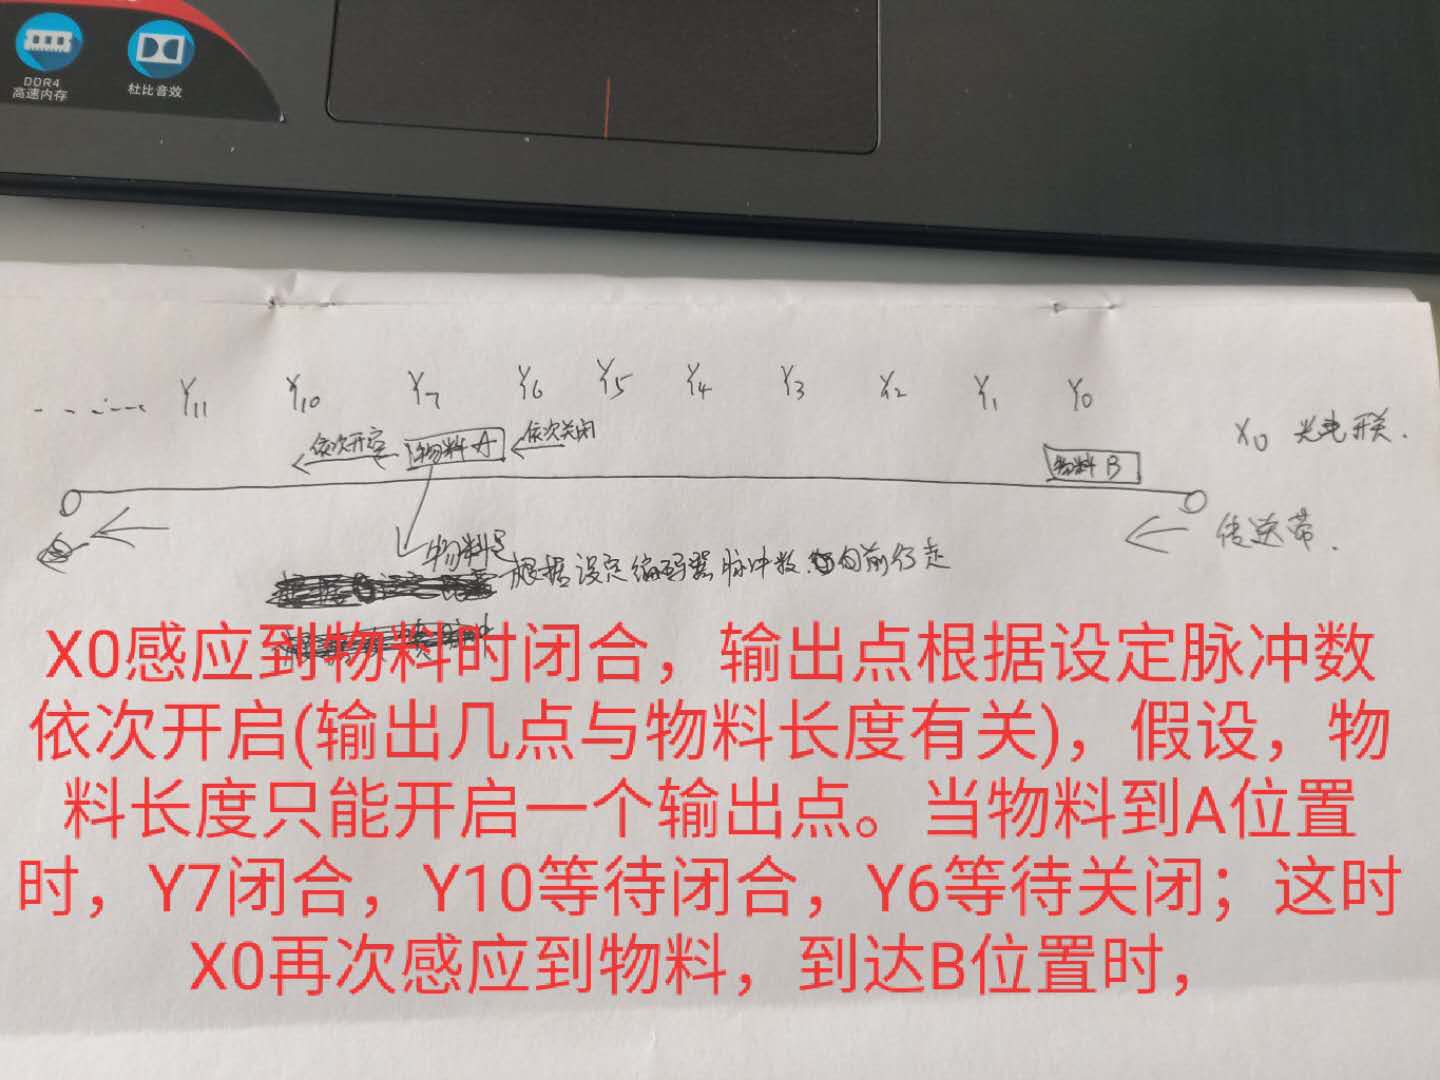 DDR4
高速内存
杜比音效
Y11 Y10 Y7 Y6 Y5 Y4 Y3 Y2 Y1 Y0
X0 光电开关.
依次开启
物料 A
依次关闭
物料 B
传送带.
物料
根据设定编码器脉冲数
向前行走
X0感应到物料时闭合，输出点根据设定脉冲数
依次开启(输出几点与物料长度有关)，假设，物
料长度只能开启一个输出点。当物料到A位置
时，Y7闭合，Y10等待闭合，Y6等待关闭；这时
X0再次感应到物料，到达B位置时，